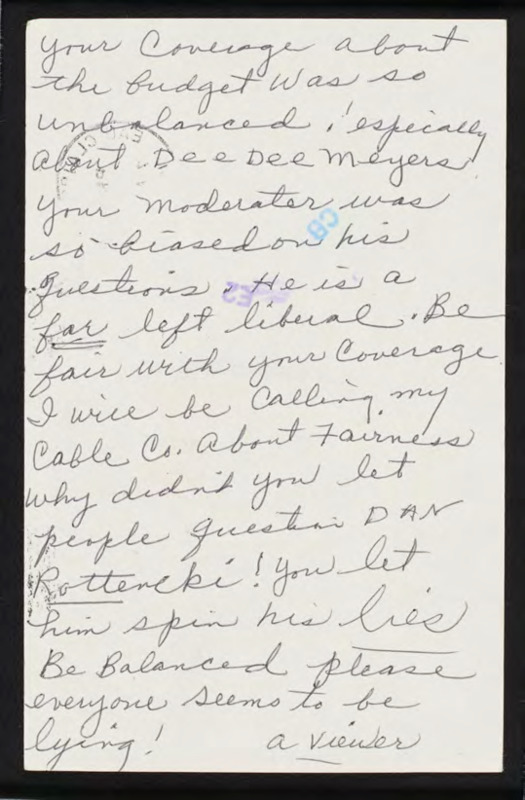 your Coverage about
the budget was so
unbalanced! especially
about Dee Dee Meyers
your moderater was
so biased on his
questions. He is a
far left liberal. Be
fair with your Coverage
I will be calling my
Cable Co. About Fairness
why didn't you let
people question DAN
Rottencki! You let
him spin his lies
Be Balanced please
everyone seems to be
lying! a viewer
CB